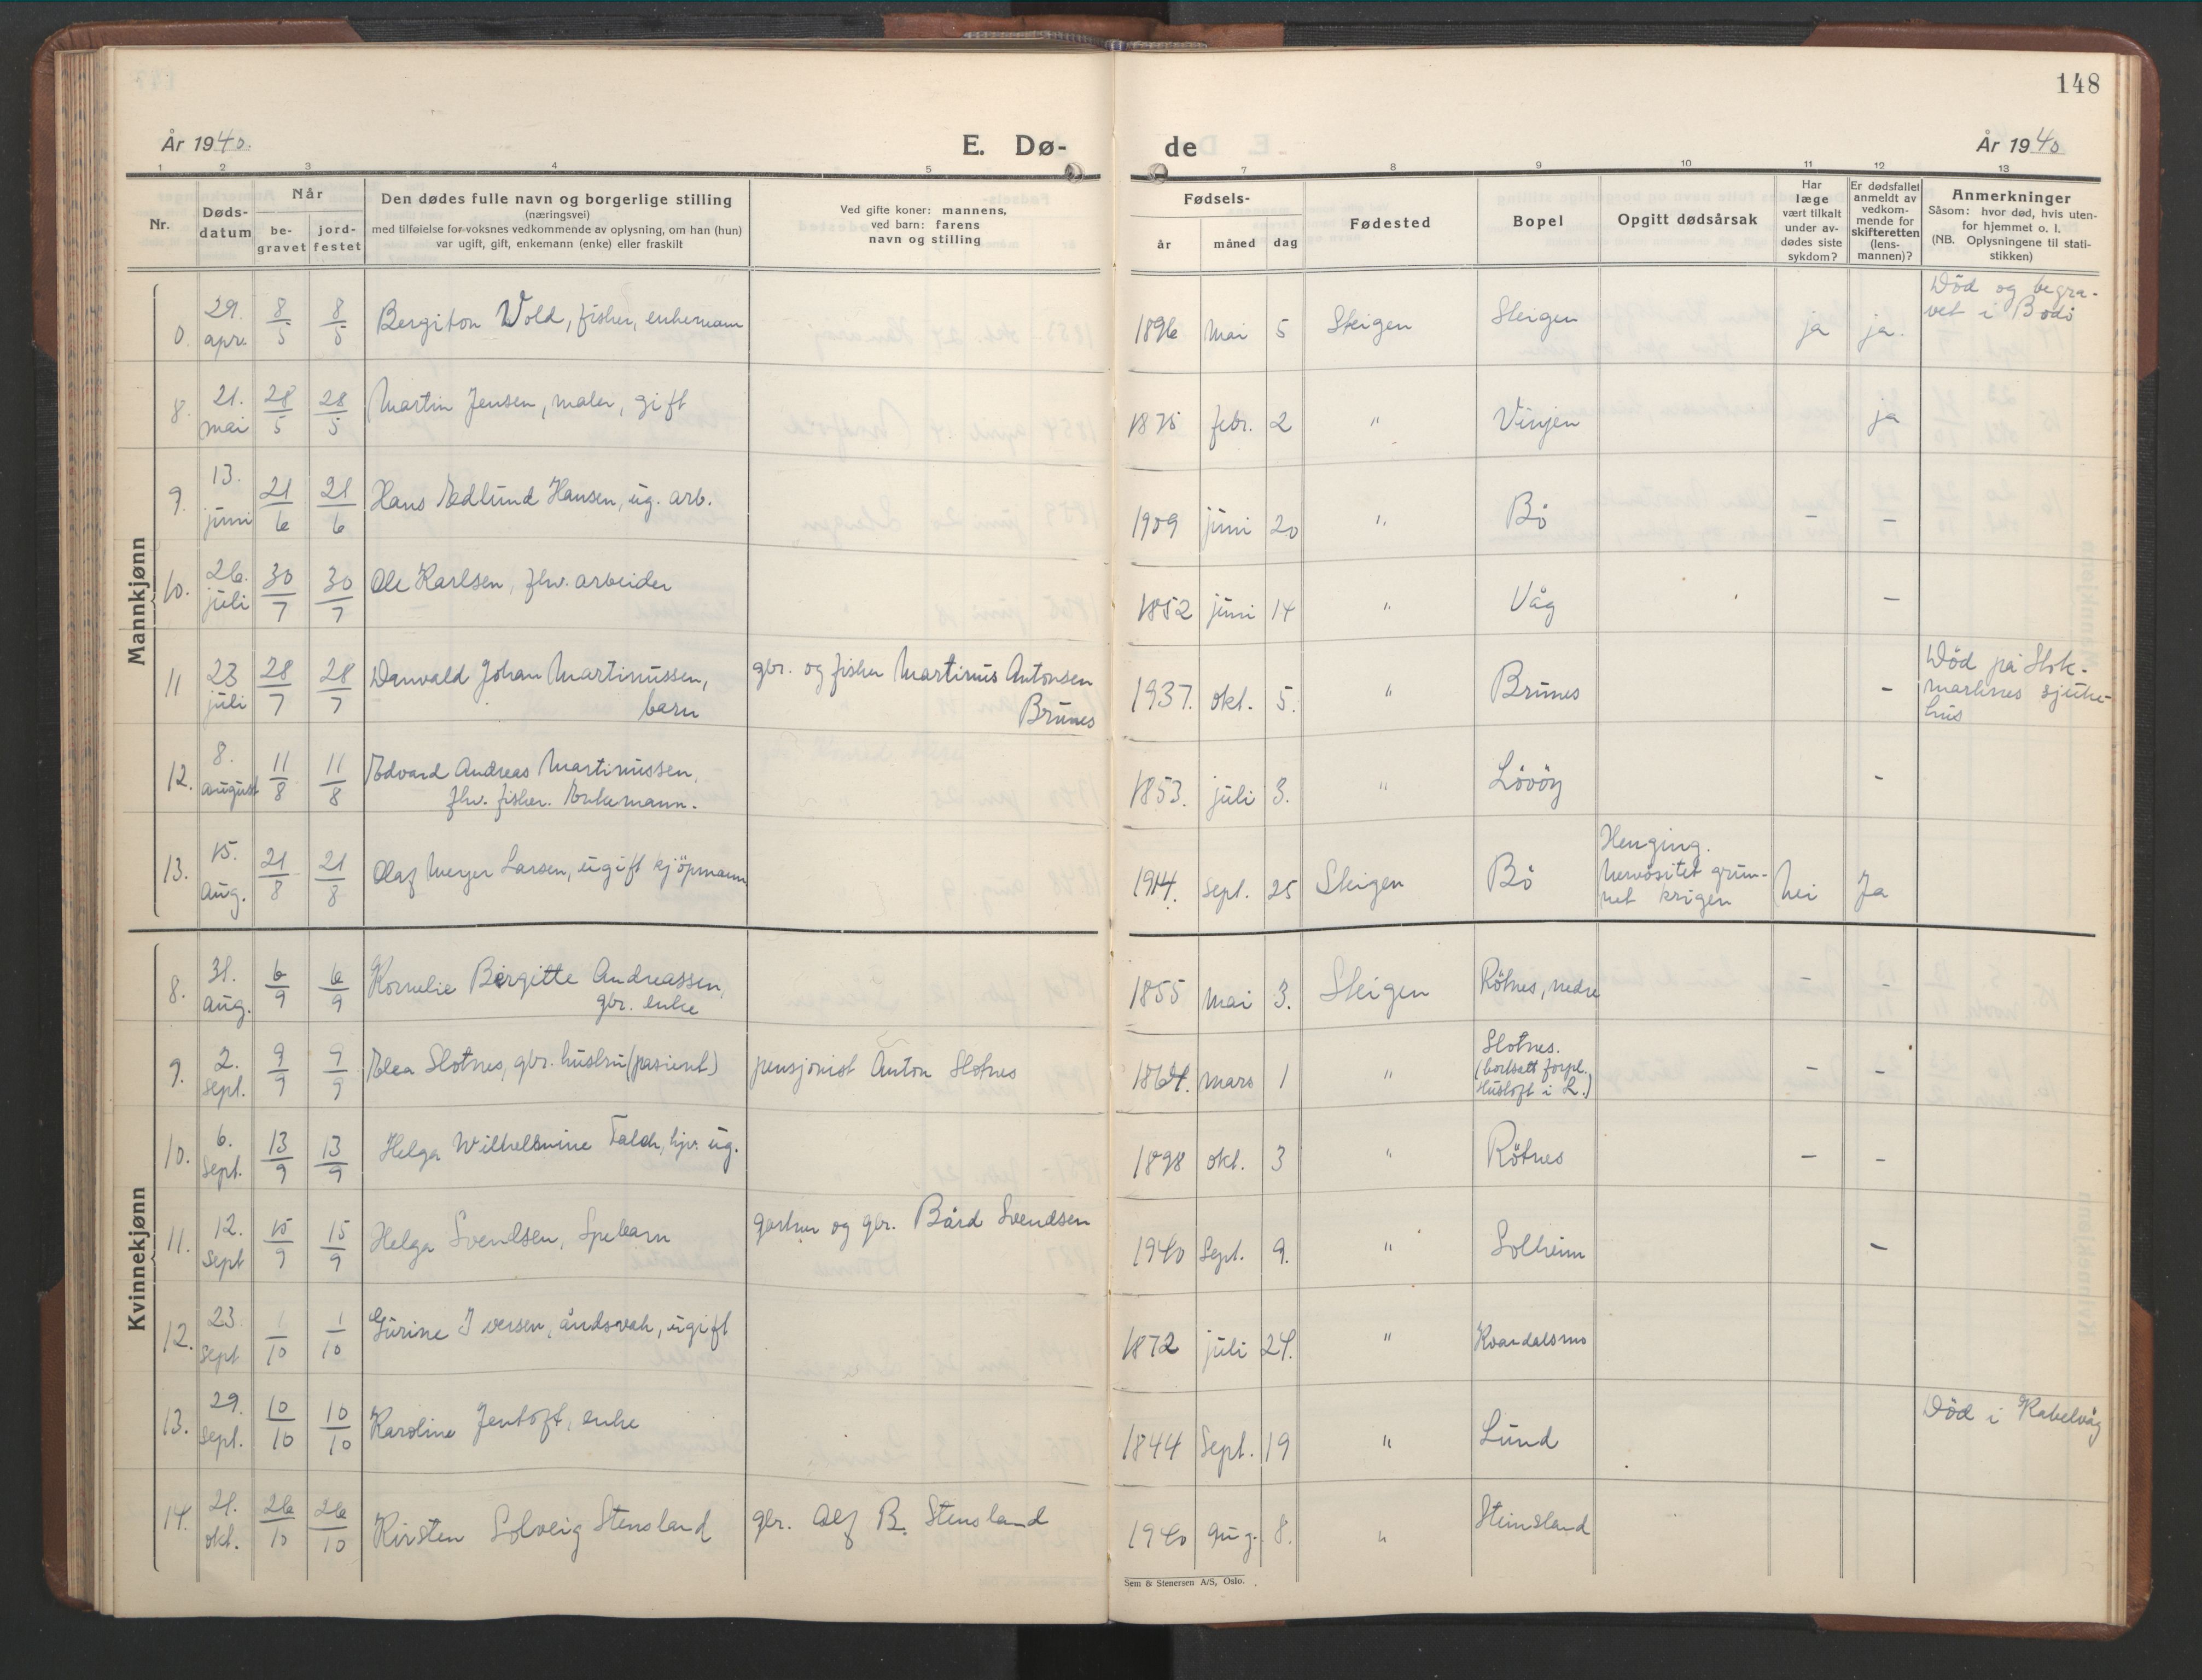 148
År 1940.
E. Dø-
de
År 1940
1 2 3 4 5 7 8 9 10 11 12 13
Nr.
Døds-
datum
Når
be-
gravet
jord-
festet
Den dødes fulle navn og borgerlige stilling
(næringsvei)
med tilføielse for voksnes vedkommende av oplysning, om han (hun)
var ugift, gift, enkemann (enke) eller fraskilt
Ved gifte koner: mannens,
ved barn: farens
navn og stilling
Fødsels-
år måned dag
Fødested
Bopel
Opgitt dødsårsak
Har
læge
vært tilkalt
under av-
dødes siste
sykdom?
Er dødsfallet
anmeldt av
vedkom-
mende for
skifteretten
(lens-
mannen)?
Anmerkninger
Såsom: hvor død, hvis uten-
for hjemmet o. l.
(NB. Oplysningene til stati-
stikken)
Mannkjønn
0. 29. apr. 8/5 8/5 Bergiton Wold, fisker, enkemann 1896 mai 5 Steigen Steigen ja ja. Död og begra-
vet i Bodö
8. 21. mai 28/5 28/5 Martin Jensen, maler, gift 1875 febr. 2 " Vinjen ja
9. 13. juni 21/6 21/6 Hans Edlund Hansen, ug. arb. 1909 juni 20 " Bö - -
10. 26. juli 30/7 30/7 Ole Karlsen, fhv. arbeider 1852 juni 14 " Våg -
11 23 juli 28/7 28/7 Danvald Johan Martinussen,
barn
gbr. og fisker Martinus Antonsen
Brunes
1937. okt. 5. " Brunes - Död på Stok-
marknes sjuke-
hus
12. 8. august 11/8 11/8 Edvard Andreas Martinussen,
fhv. fisker. Enkemann.
1853. juli 3. " Lövöy -
13. 15. Aug. 21/8 21/8 Olaf Meyer Larsen, ugift kjöpmann 1914. Sept. 25 Steigen Bö Henging.
Nervösitet grun-
net krigen
Nei Ja
Kvinnekjønn
8. 31. aug. 6/9 6/9 Kornelie Birgitte Andreassen,
gbr. enke
1855 Mai 3. Steigen Rötnes, nedre
9. 2. sept. 9/9 9/9 Elea Slotnes, gbr. hustru (pasient) pensjonist Anton Slotnes 1864. mars 1 " Slotnes.
(bortsatt forpl.
Husloft i L.)
- -
10. 6. Sept. 13/9 13/9 Helga Wilhelmine Falch, hjv. ug. 1898 okt. 3 " Rötnes - -
11. 12. Sept 15/9 15/9 Helga Svendsen, Spebarn gartner og gbr. Bård Svendsen 1940 Sept. 9. " Solheim -
12. 23. Sept 1/10 1/10 Gurine Iversen, åndsvak, ugift 1872 juli 24. " Kvandalsmo
13. 29. Sept. 10/10 10/10 Karoline Jentoft, enke 1844 Sept. 19 " Lund Död i Kabelvåg
14. 21. okt. 26/10 26/10 Kirsten Solveig Stensland gbr. Alf B. Stensland 1940 Aug. 8. " Steinsland
Sem & Stenersen A/S, Oslo.